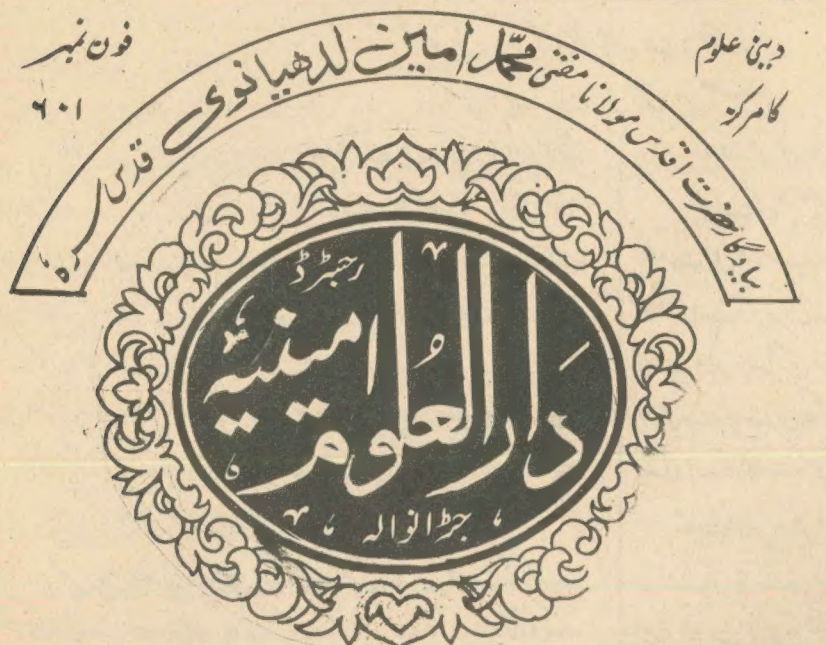 دینی علوم
کا مرکز
فون نمبر
۶۰۱
بیادگار حضرت اقدس مولانا مفتی محمد امین لدھیانوی قدس سرہ
رجسٹرڈ
دار العلوم امینیہ
جڑانوالہ